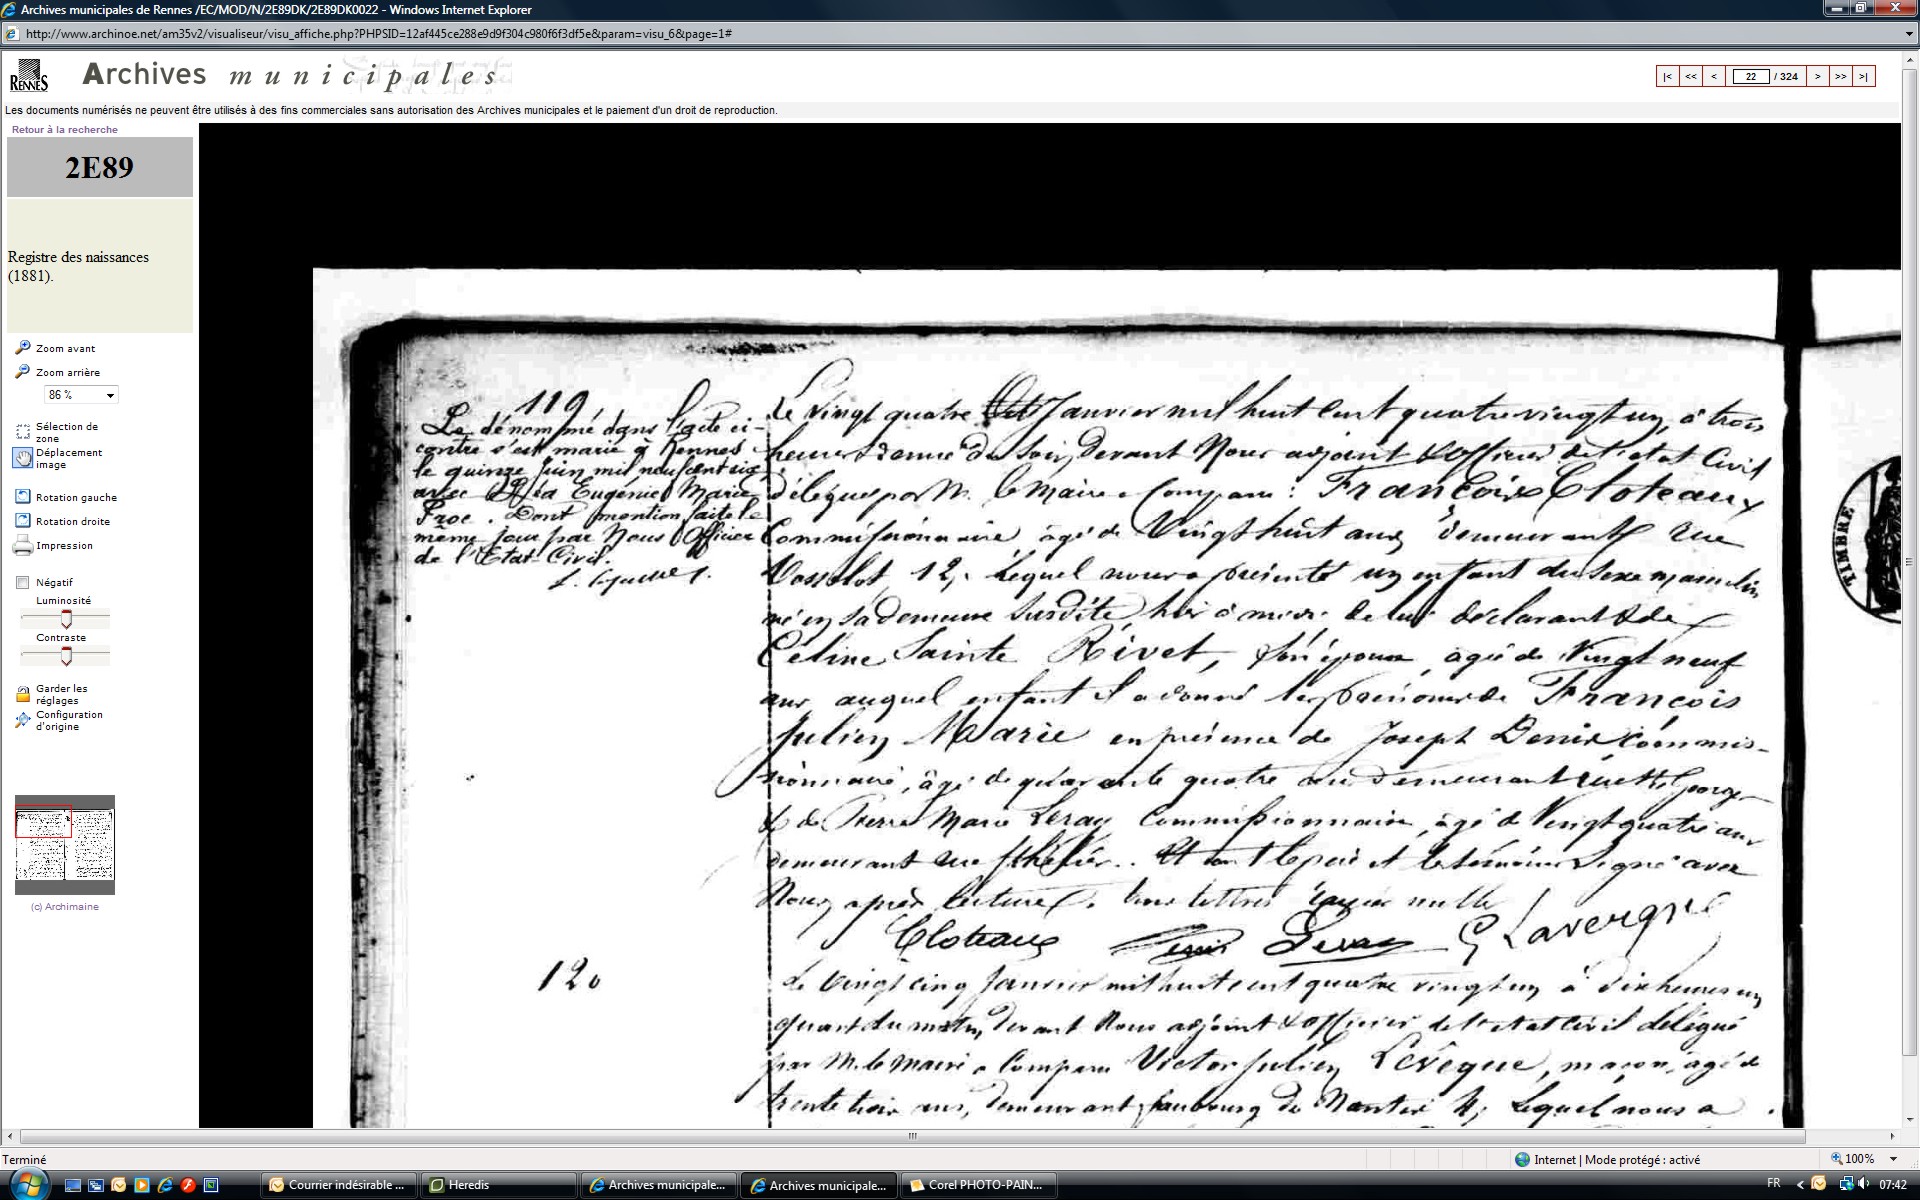 Archives municipales de Rennes /EC/MOD/N/2E89DK/2E89DK0022 - Windows Internet Explorer
http://www.archinoe.net/am35v2/visualiseur/visu_affiche.php?PHPSID=12af445ce288e9d9f304c980f6f3df5e&param=visu_6&page=1#
RENNES
Archives municipales
|< << < 22 / 324 > >> >|
Les documents numérisés ne peuvent être utilisés à des fins commerciales sans autorisation des Archives municipales et le paiement d'un droit de reproduction.
Retour à la recherche
2E89
Registre des naissances
(1881).
Zoom avant
Zoom arrière
86 %
Sélection de
zone
Déplacement
image
Rotation gauche
Rotation droite
Impression
Négatif
Luminosité
Contraste
Garder les
réglages
Configuration
d'origine
(c) Archimaine
119
Le dénommé dans l'acte ci-
contre s'est marié à Rennes
le quinze juin mil neuf cent six
avec Eugénie Marie
Proc. Dont mention faite le
même jour par Nous Officier
de l'Etat-Civil.
Le Vingt quatre Janvier mil huit cent quatre vingt un, à trois
heures demie du Soir, devant Nous adjoint & officier de l'état Civil
délégué par M. le Maire a Comparu : François Cloteaux
Commissionnaire âgé de Vingt huit ans demeurant Rue
Vasselot 12, lequel nous a présenté un enfant du sexe masculin
né en sa demeure susdite hier à midi de lui déclarant & de
Céline Sainte Rivet, son épouse, âgée de Vingt neuf
ans auquel enfant il a donné les prénoms de François
Julien Marie en présence de Joseph Denis Commis-
sionnaire, âgé de quarante quatre ans demeurant rue St Georges
& de Pierre Marie Leray Commissionnaire, âgé de Vingt quatre ans
demeurant rue . Et ont le père et les témoins Signé avec
Nous après lecture. trois lettres rayées nulles
Cloteaux Denis Leray G Lavergne
TIMBRE
120
Le Vingt cinq Janvier mil huit cent quatre vingt un à dix heures un
quart du matin, devant Nous adjoint & officier de l'état Civil délégué
par M. le Maire a Comparu Victor Julien Levêque, maçon, âgé de
trente trois ans, demeurant faubourg de Nantes, lequel nous a
Terminé
Internet | Mode protégé : activé
100%
Courrier indésirable ...
Heredis
Archives municipale...
Archives municipale...
Corel PHOTO-PAIN...
FR
07:42